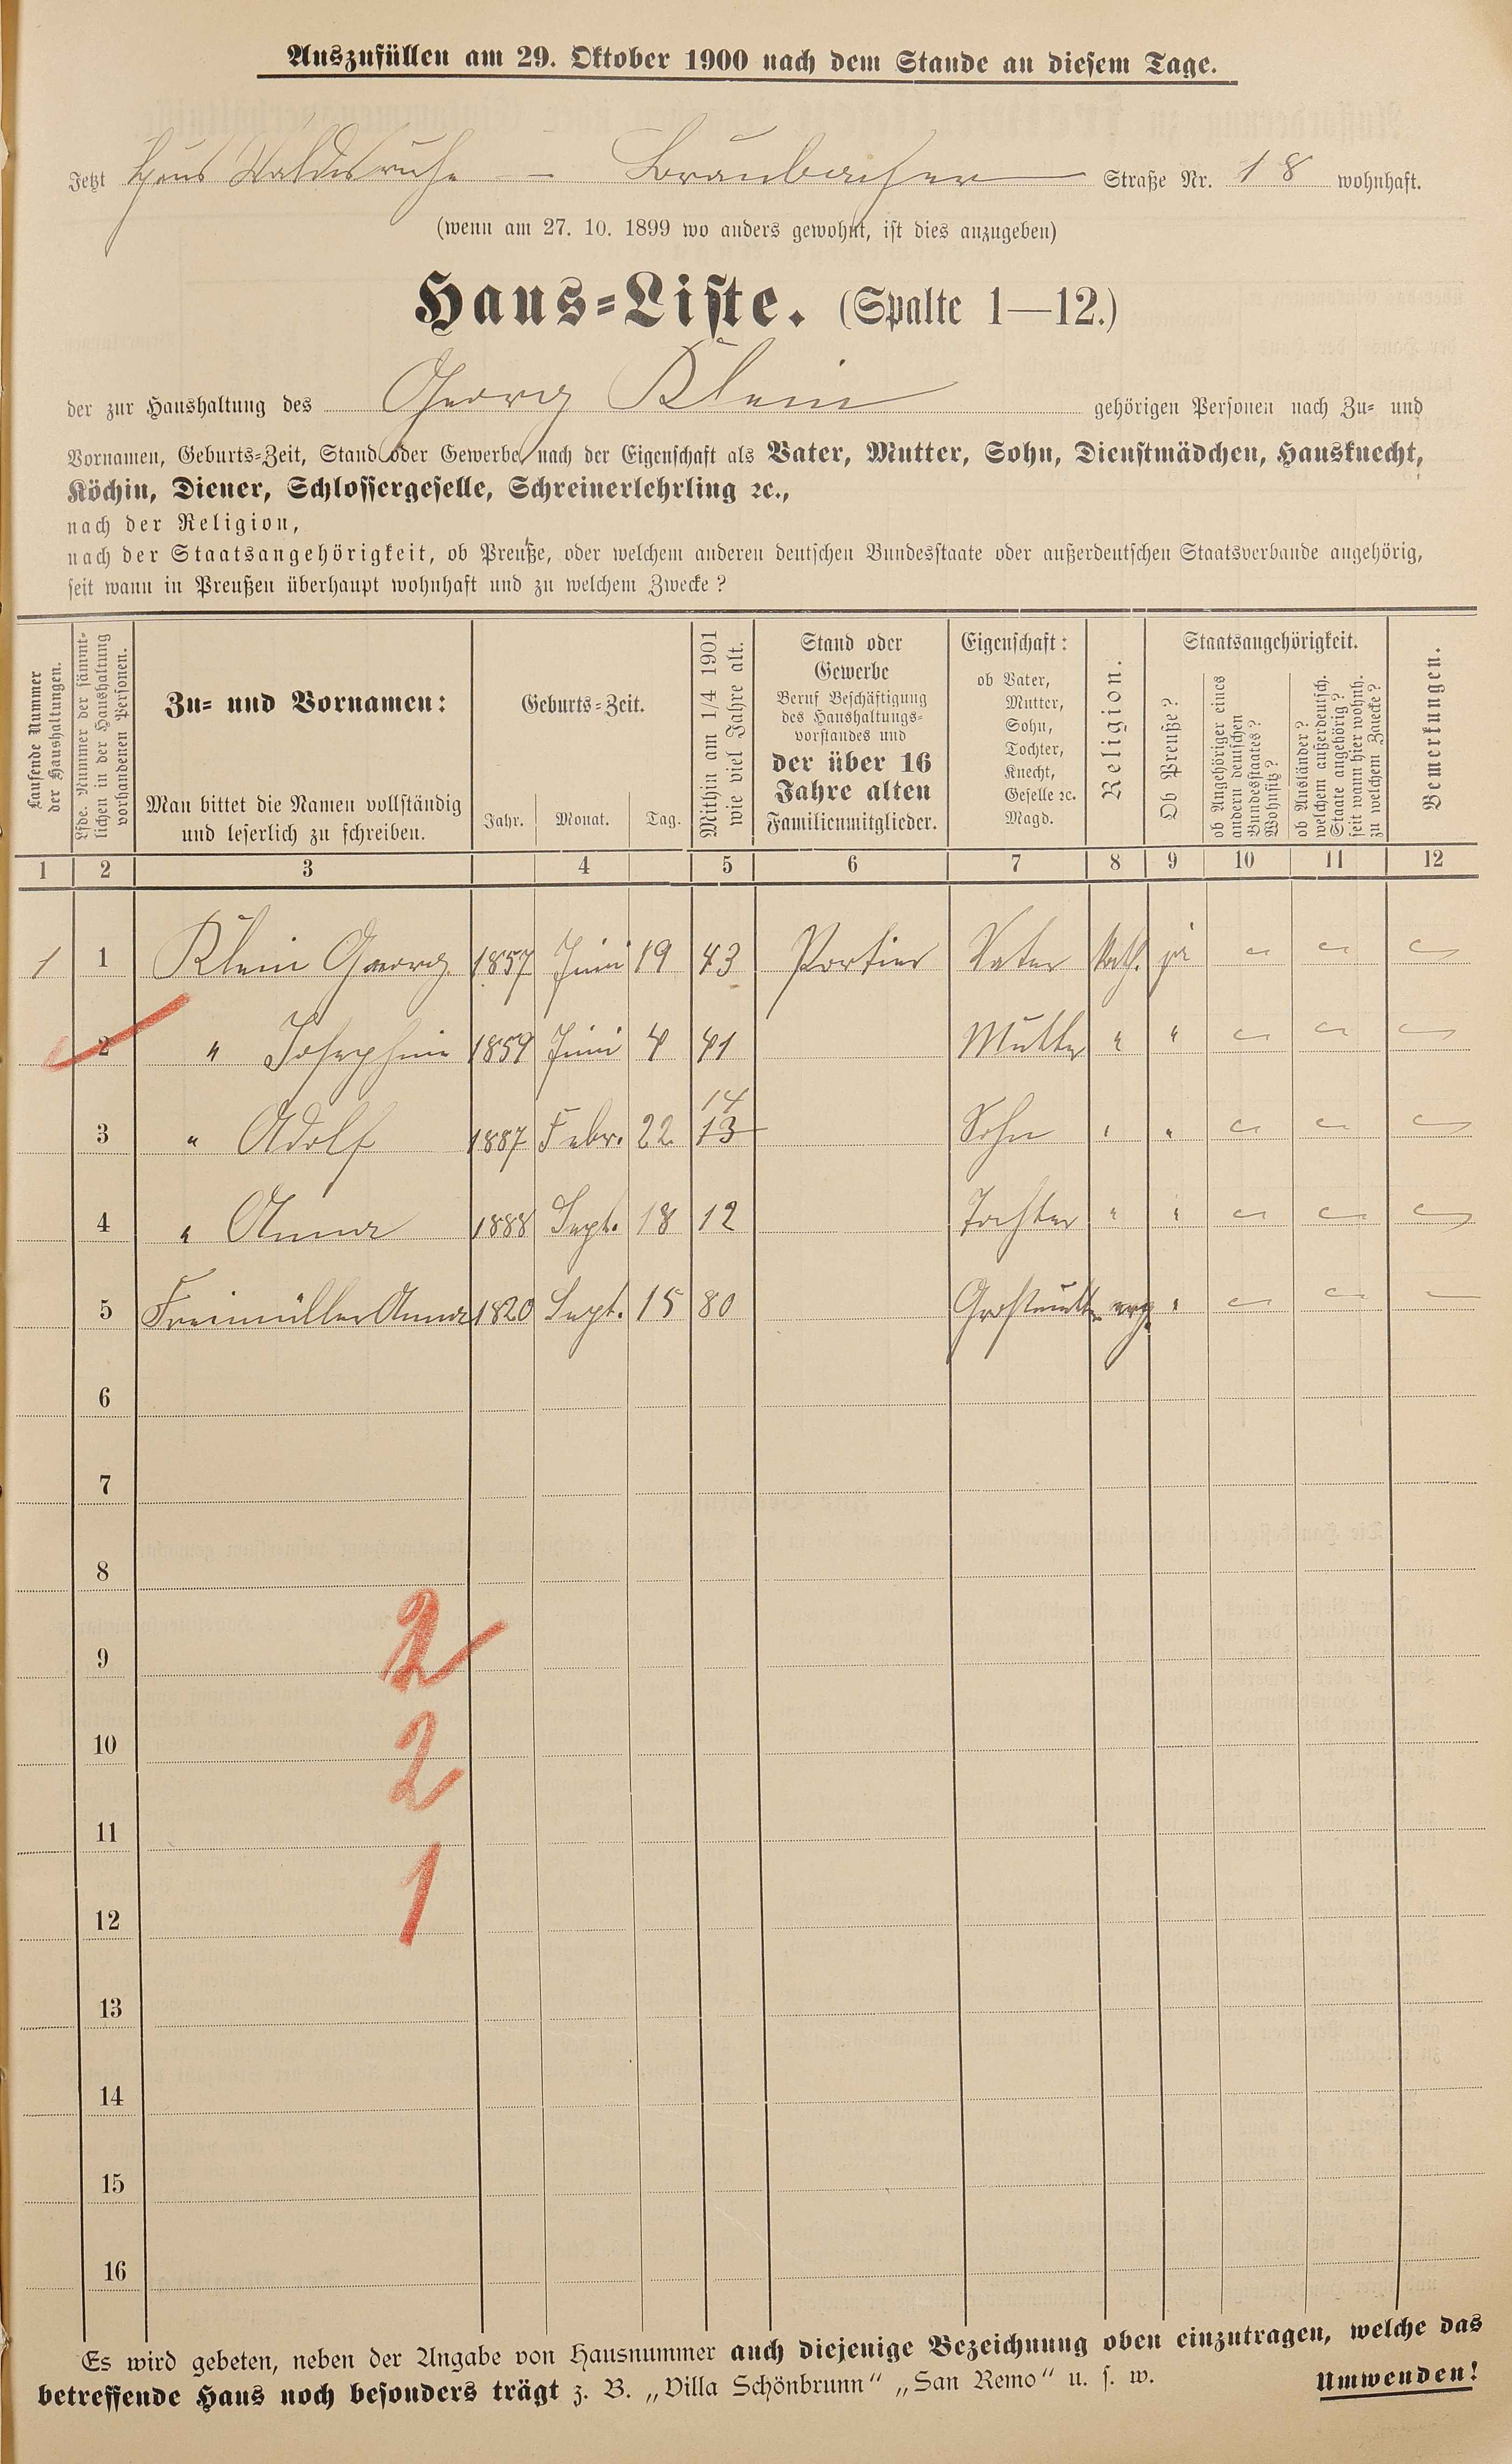 Auszufüllen am 29. Oktober 1900 nach dem Stande an diesem Tage.
Jetzt Haus Waldesruhe — Braubacher Straße Nr. 18 wohnhaft.
(wenn am 27. 10. 1899 wo anders gewohnt, ist dies anzugeben)
Haus=Liste. (Spalte 1—12.)
der zur Haushaltung des Georg Klein gehörigen Personen nach Zu= und
Vornamen, Geburts=Zeit, Stand oder Gewerbe, nach der Eigenschaft als Vater, Mutter, Sohn, Dienstmädchen, Hausknecht,
Köchin, Diener, Schlossergeselle, Schreinerlehrling ꝛc.,
nach der Religion,
nach der Staatsangehörigkeit, ob Preuße, oder welchem anderen deutschen Bundesstaate oder außerdeutschen Staatsverbande angehörig,
seit wann in Preußen überhaupt wohnhaft und zu welchem Zwecke?
Laufende Nummer
der Haushaltungen.
Lfde. Nummer der sämmt=
lichen in der Haushaltung
vorhandenen Personen.
Zu= und Vornamen:
Man bittet die Namen vollständig
und leserlich zu schreiben.
Geburts=Zeit.
Jahr. Monat. Tag.
Mithin am 1/4 1901
wie viel Jahre alt.
Stand oder
Gewerbe
Beruf Beschäftigung
des Haushaltungs=
vorstandes und
der über 16
Jahre alten
Familienmitglieder.
Eigenschaft:
ob Vater,
Mutter,
Sohn,
Tochter,
Knecht,
Geselle ꝛc.
Magd.
Religion.
Staatsangehörigkeit.
Ob Preuße?
ob Angehöriger eines
andern deutschen
Bundesstaates?
Wohnsitz?
ob Ausländer?
welchem außerdeutsch.
Staate angehörig?
seit wann hier wohnh.
zu welchem Zwecke?
Bemerkungen.
1 2 3 4 5 6 7 8 9 10 11 12
1 1 Klein Georg 1857 Juni 19 43 Portier Vater kath. ja
2 " Josephine 1859 Juni 4 41 Mutter " "
14
3 " Adolf 1887 Febr. 22. 13 Sohn " "
4 " Anna 1888 Sept. 18 12 Tochter " "
5 Freimüller Anna 1820 Sept. 15 80 Großmutter evg. "
6
7
8
2
9
2
10
11
1
12
13
14
15
16
Es wird gebeten, neben der Angabe von Hausnummer auch diejenige Bezeichnung oben einzutragen, welche das
betreffende Haus noch besonders trägt z. B. „Villa Schönbrunn“ „San Remo“ u. s. w.
Umwenden!